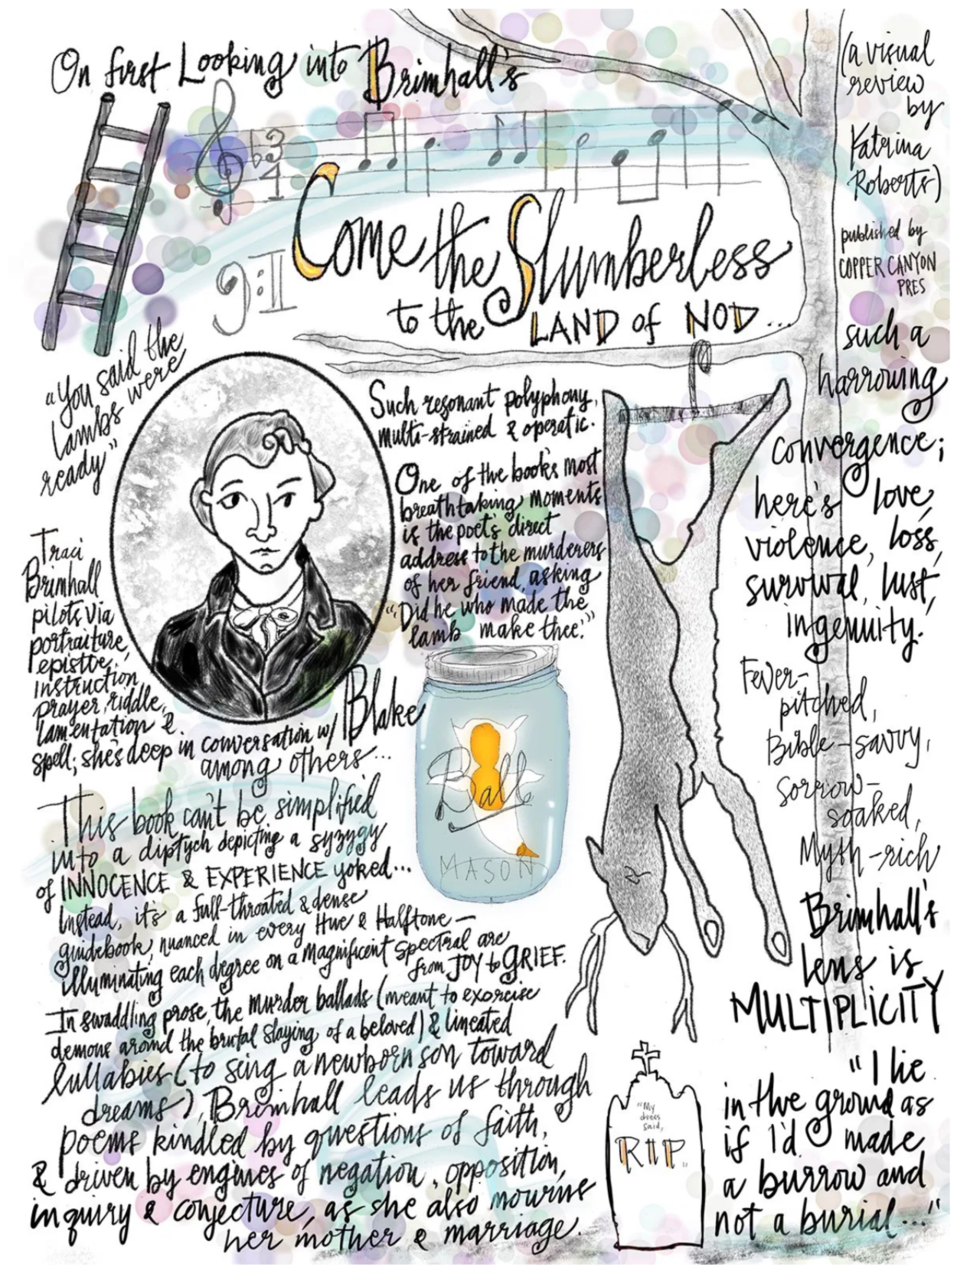 On first Looking into Brimhall's
Come the Slumberless
to the LAND of NOD...
(a visual
review
by
Katrina
Roberts)
published by
COPPER CANYON
PRES
"You said the
lambs were
ready"
Such resonant polyphony,
multi-strained & operatic.
One of the book's most
breathtaking moments
is the poet's direct
address to the murderers
of her friend, asking
"Did he who made the
lamb make thee?"
Traci
Brimhall
pilots via
portraiture,
epistle,
instruction,
prayer, riddle,
lamentation &
spell; she's deep in conversation w/ Blake
among others...
This book can't be simplified
into a diptych depicting a syzygy
of INNOCENCE & EXPERIENCE yoked...
Instead, it's a full-throated & dense
guidebook, nuanced in every Hue & Halftone —
illuminating each degree on a Magnificent spectral arc
from JOY to GRIEF.
In swaddling prose, the murder ballads (meant to exorcise
demons around the brutal slaying of a beloved) & lineated
lullabies (to sing a newborn son toward
dreams), Brimhall leads us through
poems kindled by questions of faith,
& driven by engines of negation, opposition,
inquiry & conjecture, as she also mourns
her mother & marriage.
Ball
MASON
such a
harrowing
convergence;
here's love,
violence, loss,
survival, lust,
ingenuity.
Fever-
pitched,
Bible-savvy,
sorrow-
soaked,
Myth-rich
Brimhall's
lens is
MULTIPLICITY
"My
said,
RIP"
"I lie
in the ground as
if I'd made
a burrow and
not a burial..."